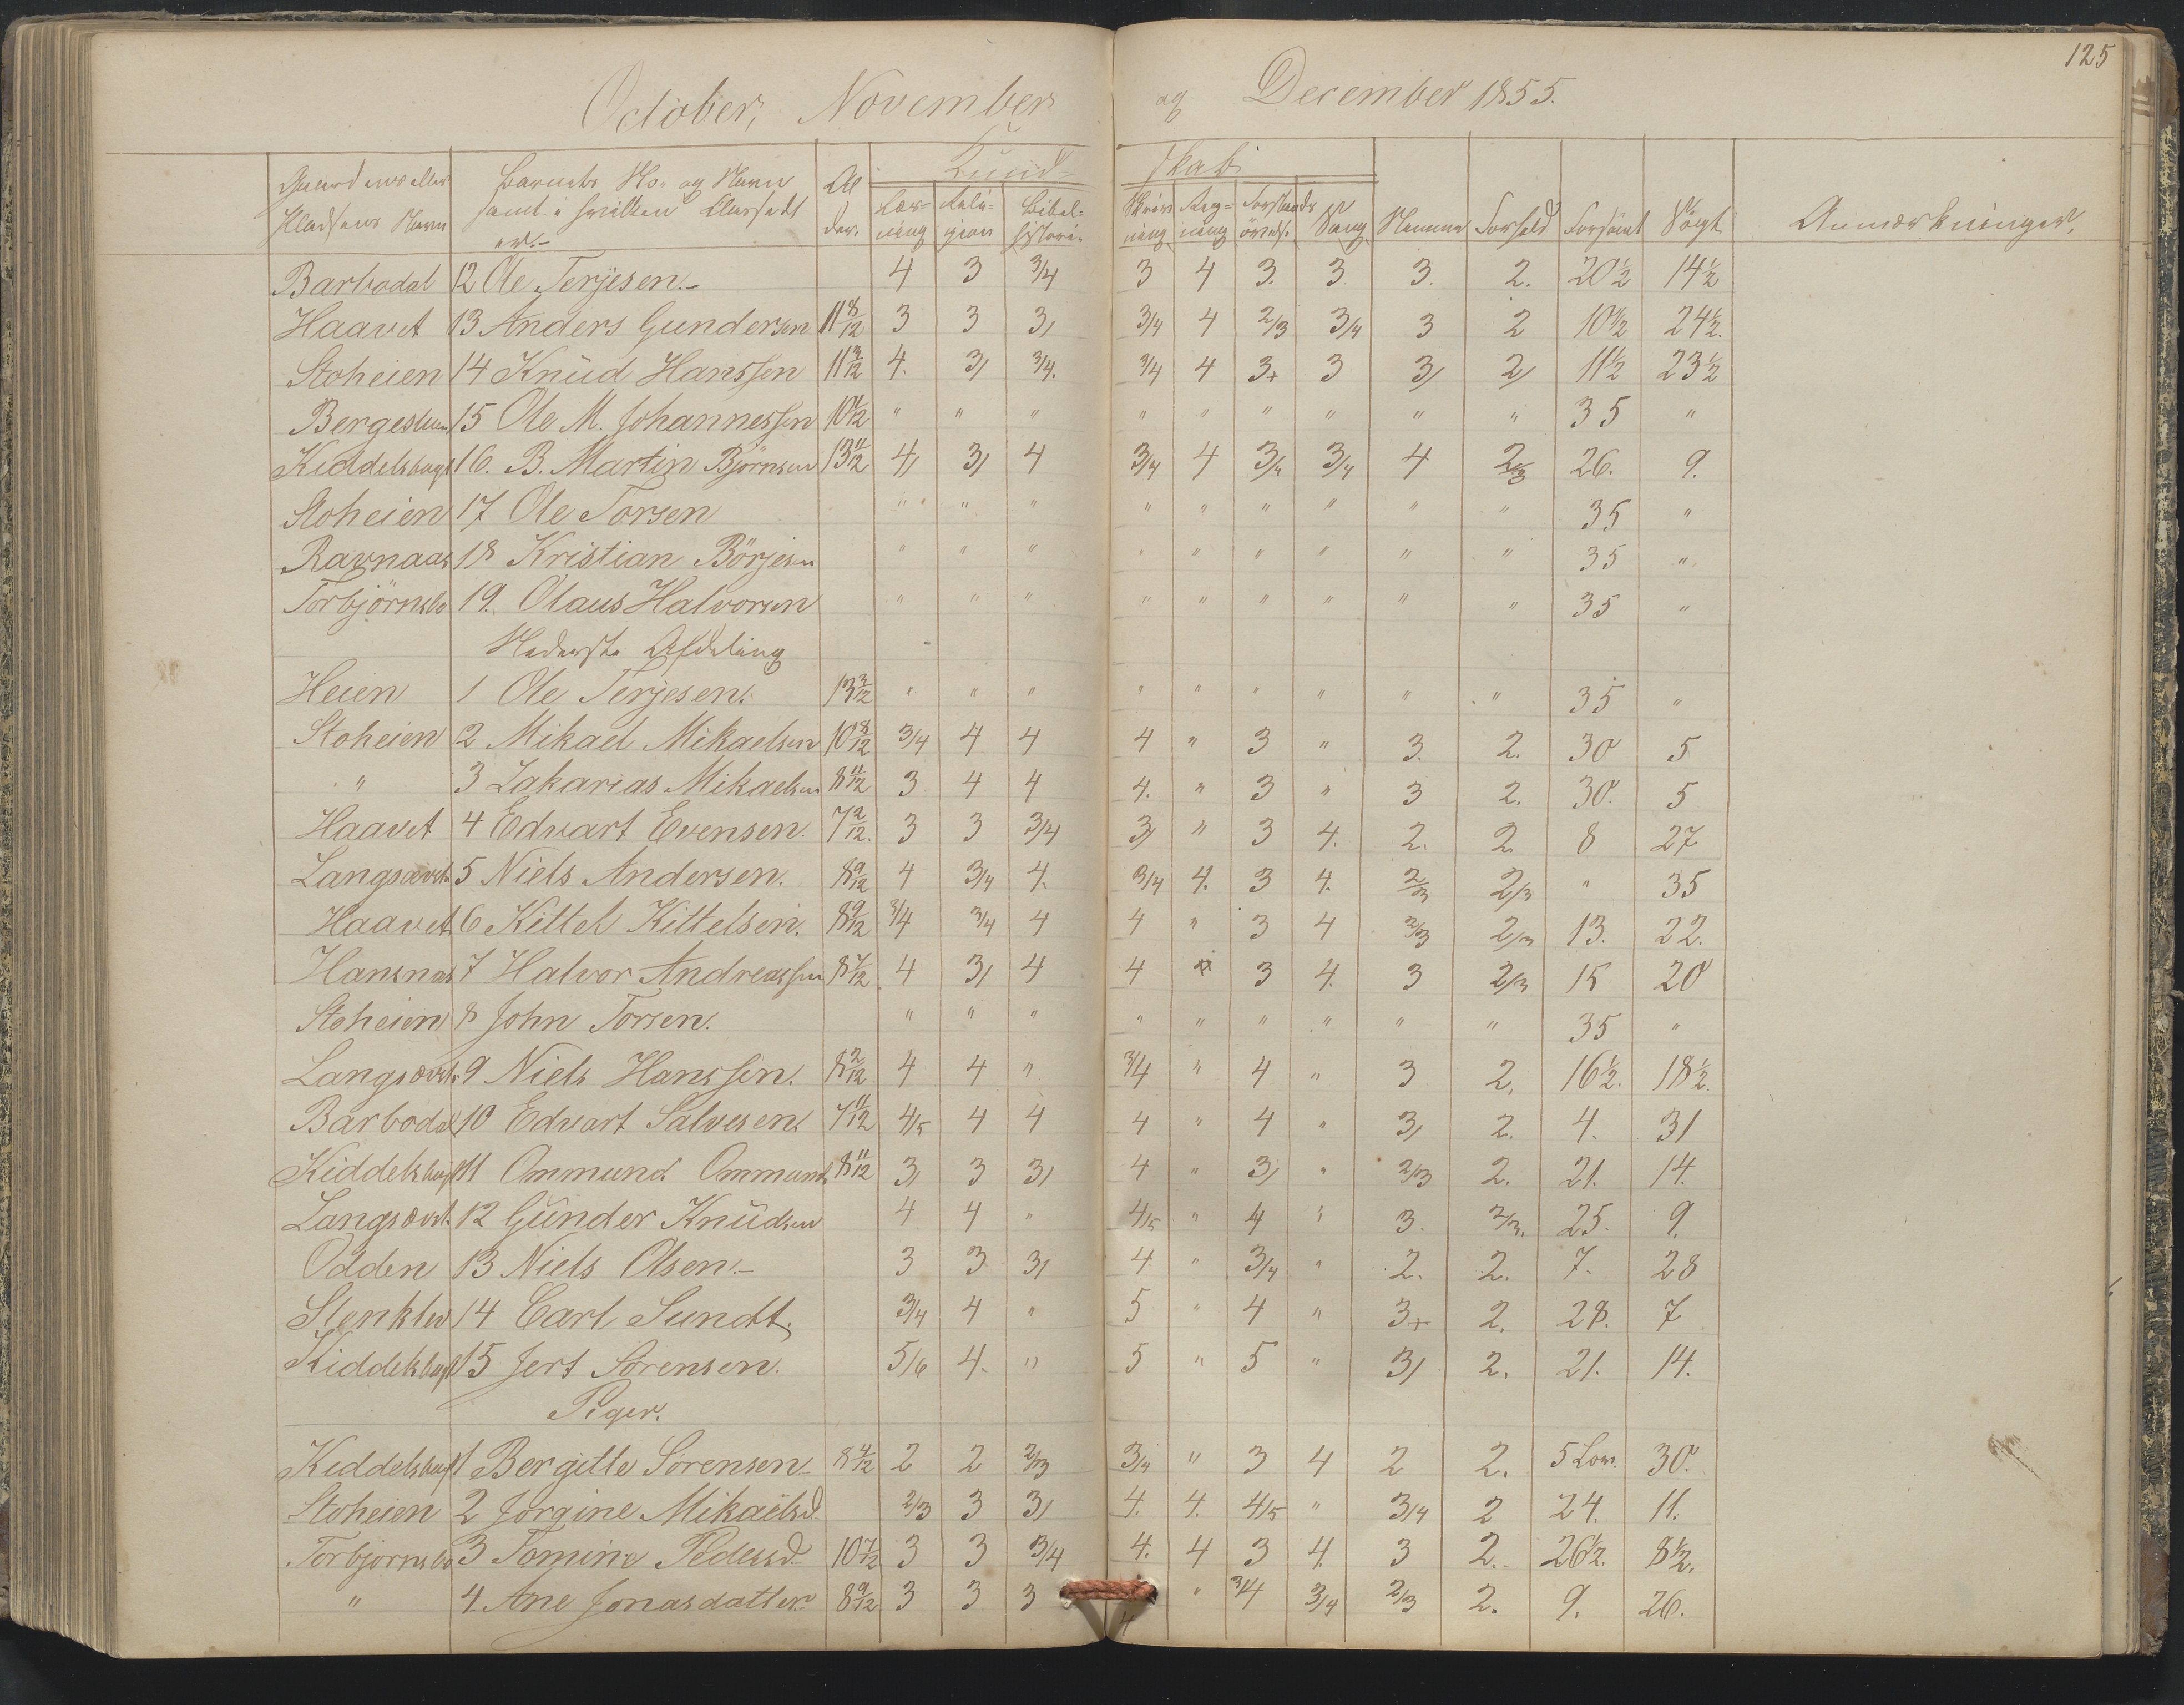 125
October, November og December 1855.
Gaardens eller Pladsens Navn | Barnets No. og Navn samt i hvilken Classe det er.- | Alder. | Kundskab i | Nemme | Forhold | Forsømt | Søgt | Anmærkninger.
Læsning | Religion | Bibelhistorie. | Skrivning | Regning | Forstandsøvelse. | Sang
Barbodal 12 Ole Terjesen.- 4 3 3/4 3 4 3. 3. 3. 2. 20½ 14½
Haavet 13 Anders Gundersen 11 8/12 3 3 3/ 3/4 4 2/3 3/4 3 2 10½ 24½.
Stoheien 14 Knud Hanssen 11 3/12 4. 3/ 3/4. 3/4 4 3+ 3 3/ 2/ 11½ 23½
15 Ole M. Johannessen " " " " " " " " " 35 "
16. B. Martin Björnsen 13 11/12 4/ 3/ 4 3/4 4 3/4 3/4 4 2/3 26. 9.
Stoheien 17 Ole Torsen " " " " " " " " " " 35 "
Ravnaas 18 Kristian Börjesen " " " " " " " " " 35 "
Torbjörnsbo 19. Olaus Halvorsen " " " " " " " " " 35 "
Nederste Afdeling
Heien 1 Ole Terjesen. 13 3/12 " " " " " " " " " 35 "
Stoheien 2 Mikael Mikaelsen 10 8/12 3/4 4 4 4 " 3 " 3. 2. 30 5
" 3 Zakarias Mikaelsen 8 11/12 3 4 4 4. " 3 " 3 2. 30. 5
Haavet 4 Edvart Evensen. 7 2/12. 3 3 3/4 3/ " 3 4. 2. 2 8 27
Langsæveln 5 Niels Andersen. 8 9/12 4 3/4 4. 3/4 4. 3 4. 2/3 2/3 " 35
Haavet 6 Kittel Kittelsen. 8 9/12 3/4 3/4 4 4 " 3 4 2/3 2/3 13. 22.
Hansnæs 7 Halvor Andreassen 8 7/12 4 3/ 4 4 " 3 4. 3 2/3 15 20
Stoheien 8 John Torsen. " " " " " " " " " 35 "
9 Niels Hanssen. 8 2/12 4 4 " 3/4 " 4 " 3 2. 16½. 18½.
Barbodal 10 Edvart Salvesen 7 11/12 4/5 4 4 4 " 4 " 3/ 2. 4. 31
11 Ommund Ommunds 8 11/12 3/ 3 3/ 4 " 3/ " 2/3 2. 21. 14.
12 Gunder Knudsen 4 4 " 4/5 " 4 " 3. 2/3. 25. 9.
Odden 13 Niels Olsen.- 3 3 3/ 4 " 3/4 " 2. 2. 7. 28
Stenklev 14 Carl Sundt. 3/4 4 " 5 " 4 " 3+ 2. 28. 7
15 Jert Sörensen. 5/6 4. " 5 " 5 " 3/ 2. 21. 14.
Piger.
1 Bergitte Sörensen 8 4/12 2 2 2/3 3/4 " 3 4 2 2. 5 Lov. 30.
Stoheien 2 Jörgine Mikaelsd. 2/3 3 3/ 4. 4. 4/5 " 3/4 2 24. 11.
Torbjornsbo 3 Tomine Pedersd. 10 7/12 3 3 3/4 4. 4 3 4. 3 2. 26½. 8½.
" 4 Ane Jonasdatter 8 9/12 3 3 3 4 " 3/4 3/4 2/3 2. 9. 26.